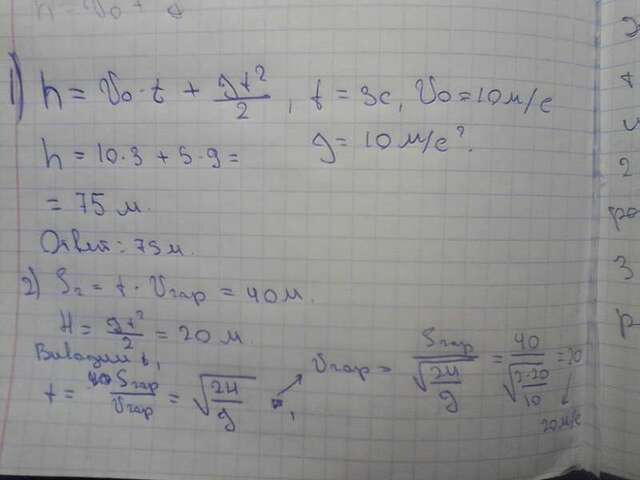 1) h = V₀·t + gt²/2, t = 3c, V₀ = 10м/с
h = 10·3 + 5·9 =
g = 10 м/с².
= 75 м.
Ответ: 75м.
2) Sг = t · Vгор = 40м.
H = gt²/2 = 20 м.
t = Sгор/Vгор = √(2H/g)
Vгор = Sгор/√(2H/g) = 40/√(2·20/10) = 20
20м/с
2
3